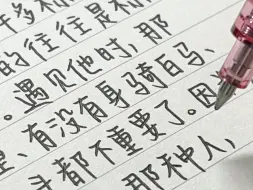 多
的往往是
。遇见他时,那
,有没有身骑白马、
都不重要了。因
那种人,